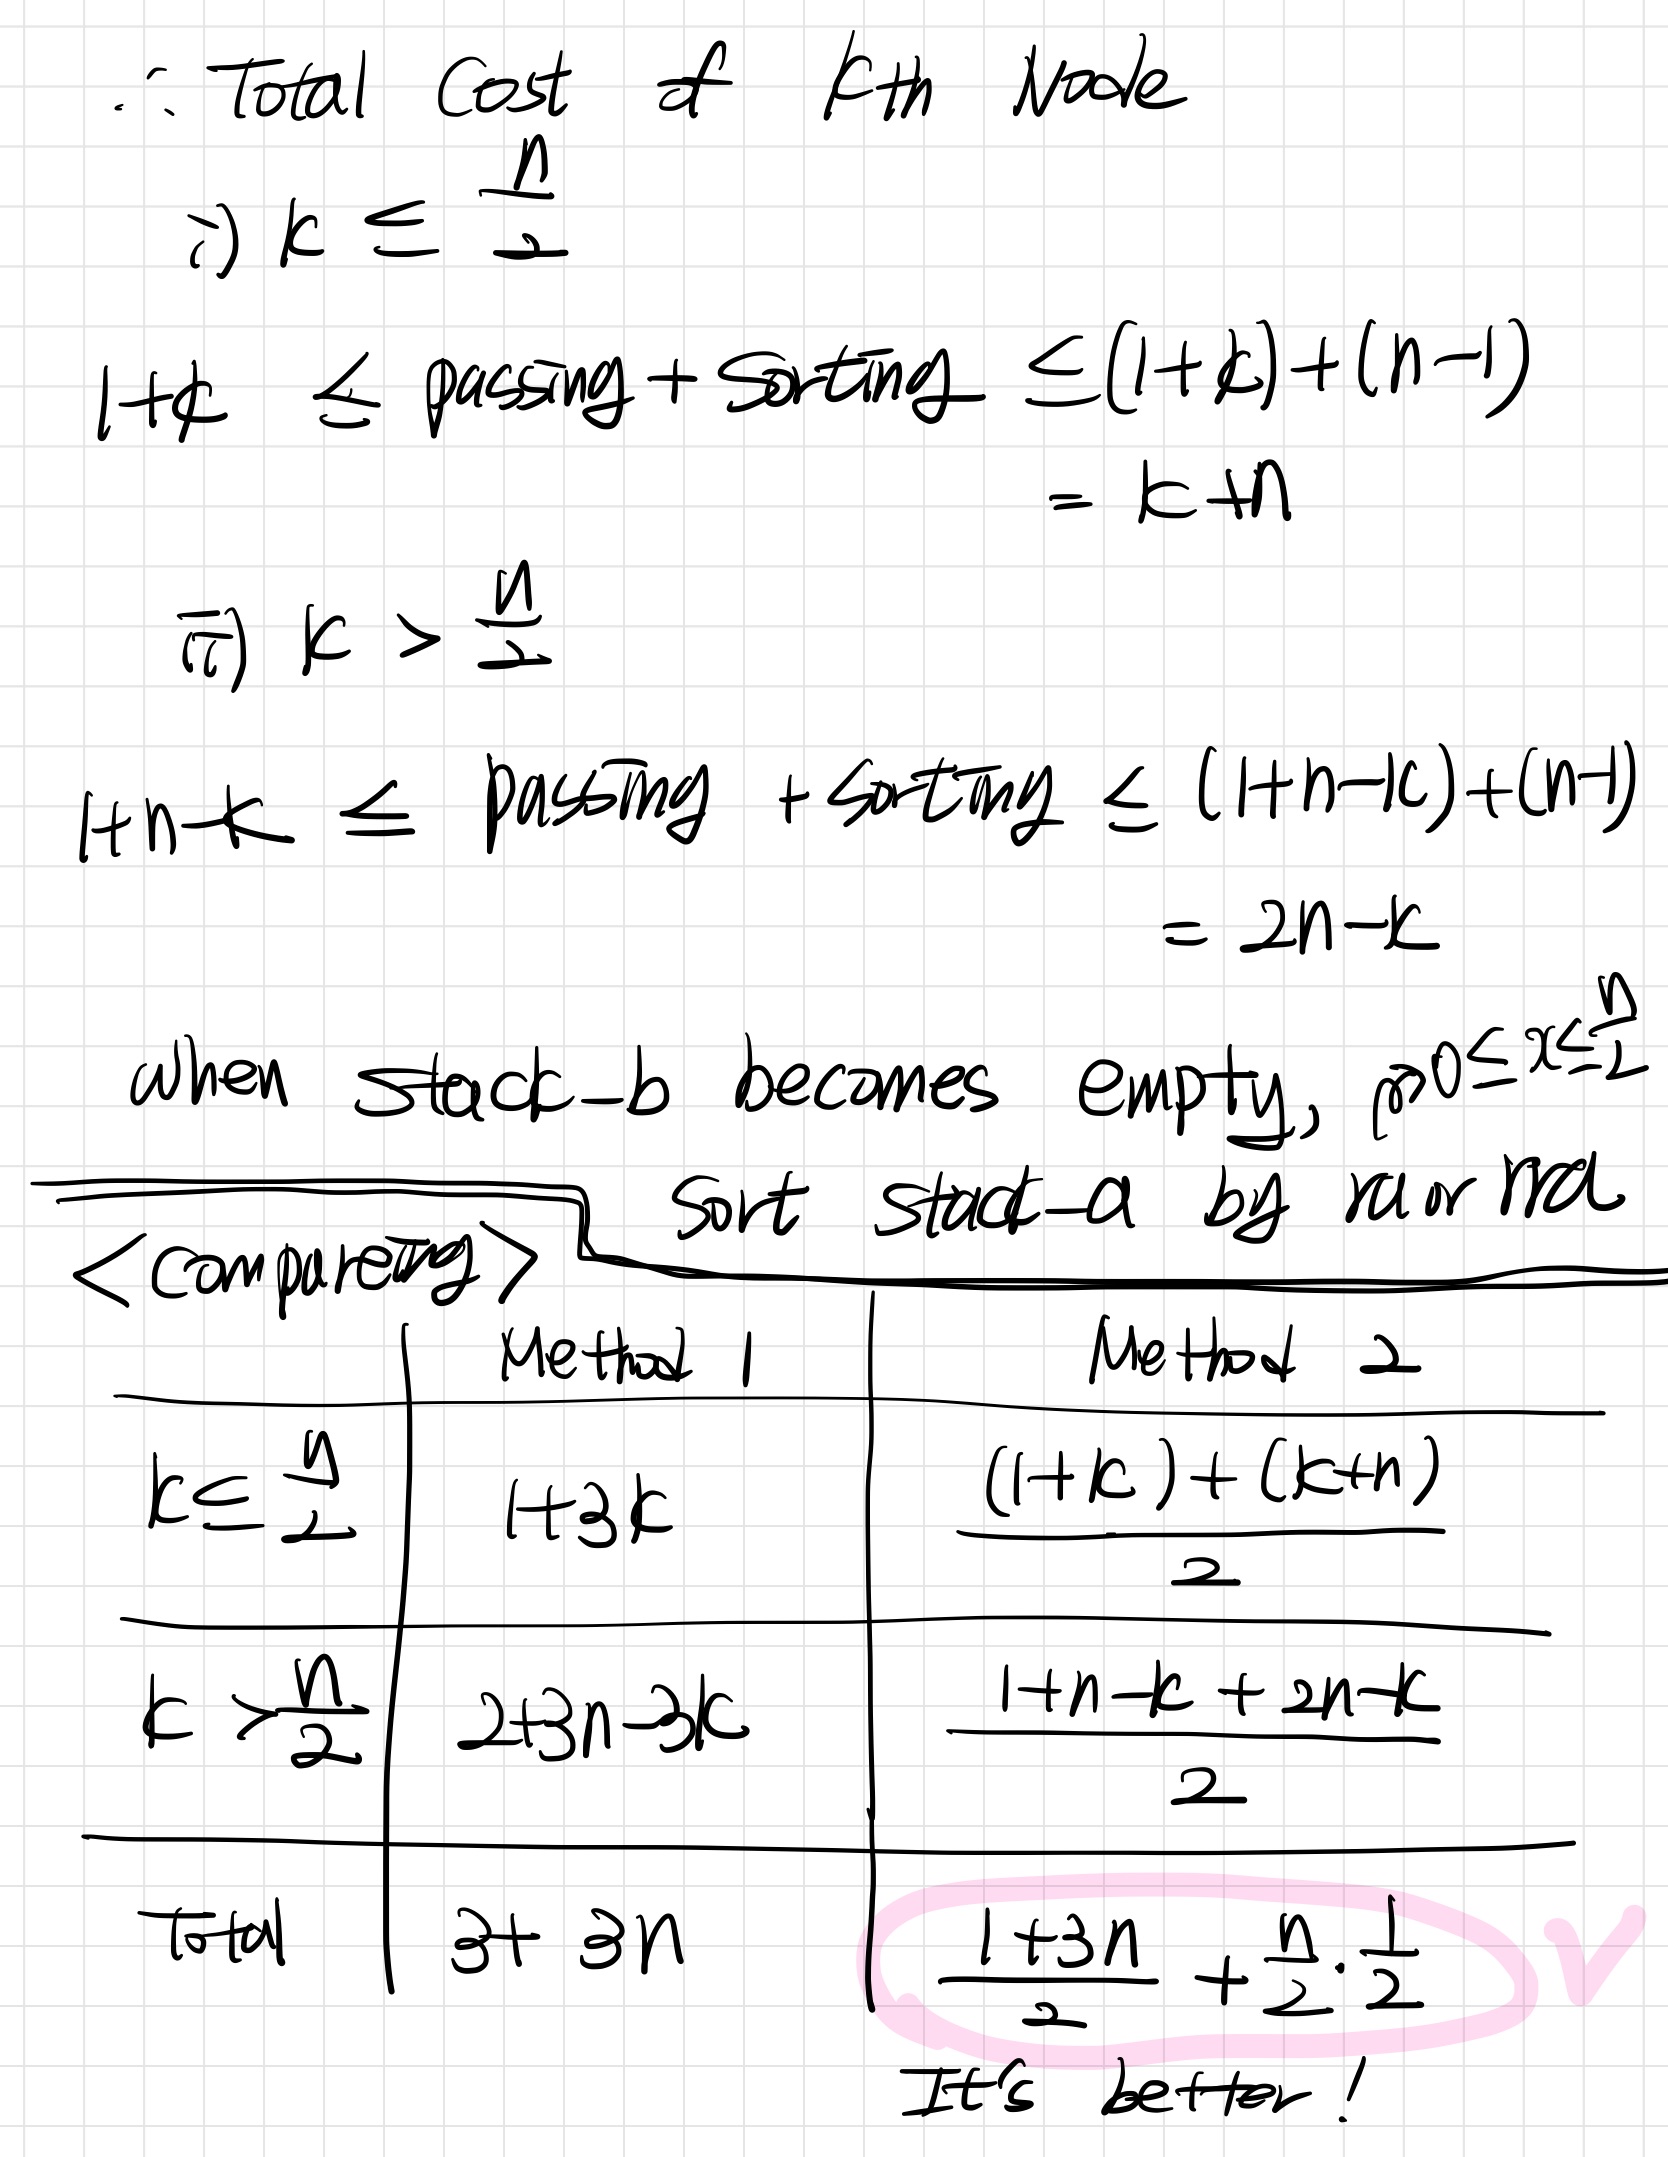 ∴ Total Cost of kth Node
i) k ≤ n/2
1+k ≤ passing + sorting ≤ (1+k) + (n-1)
= k+n
ii) k > n/2
1+n-k ≤ passing + sorting ≤ (1+n-k) + (n-1)
= 2n-k
when stack-b becomes empty, 0 ≤ x ≤ n/2
sort stack-a by ra or rra
<compareing>
Method 1 Method 2
k ≤ n/2 1+3k ((1+k)+(k+n))/2
k > n/2 2+3n-3k (1+n-k+2n-k)/2
Total 3+3n (1+3n)/2 + n/2 · 1/2 V
It's better!